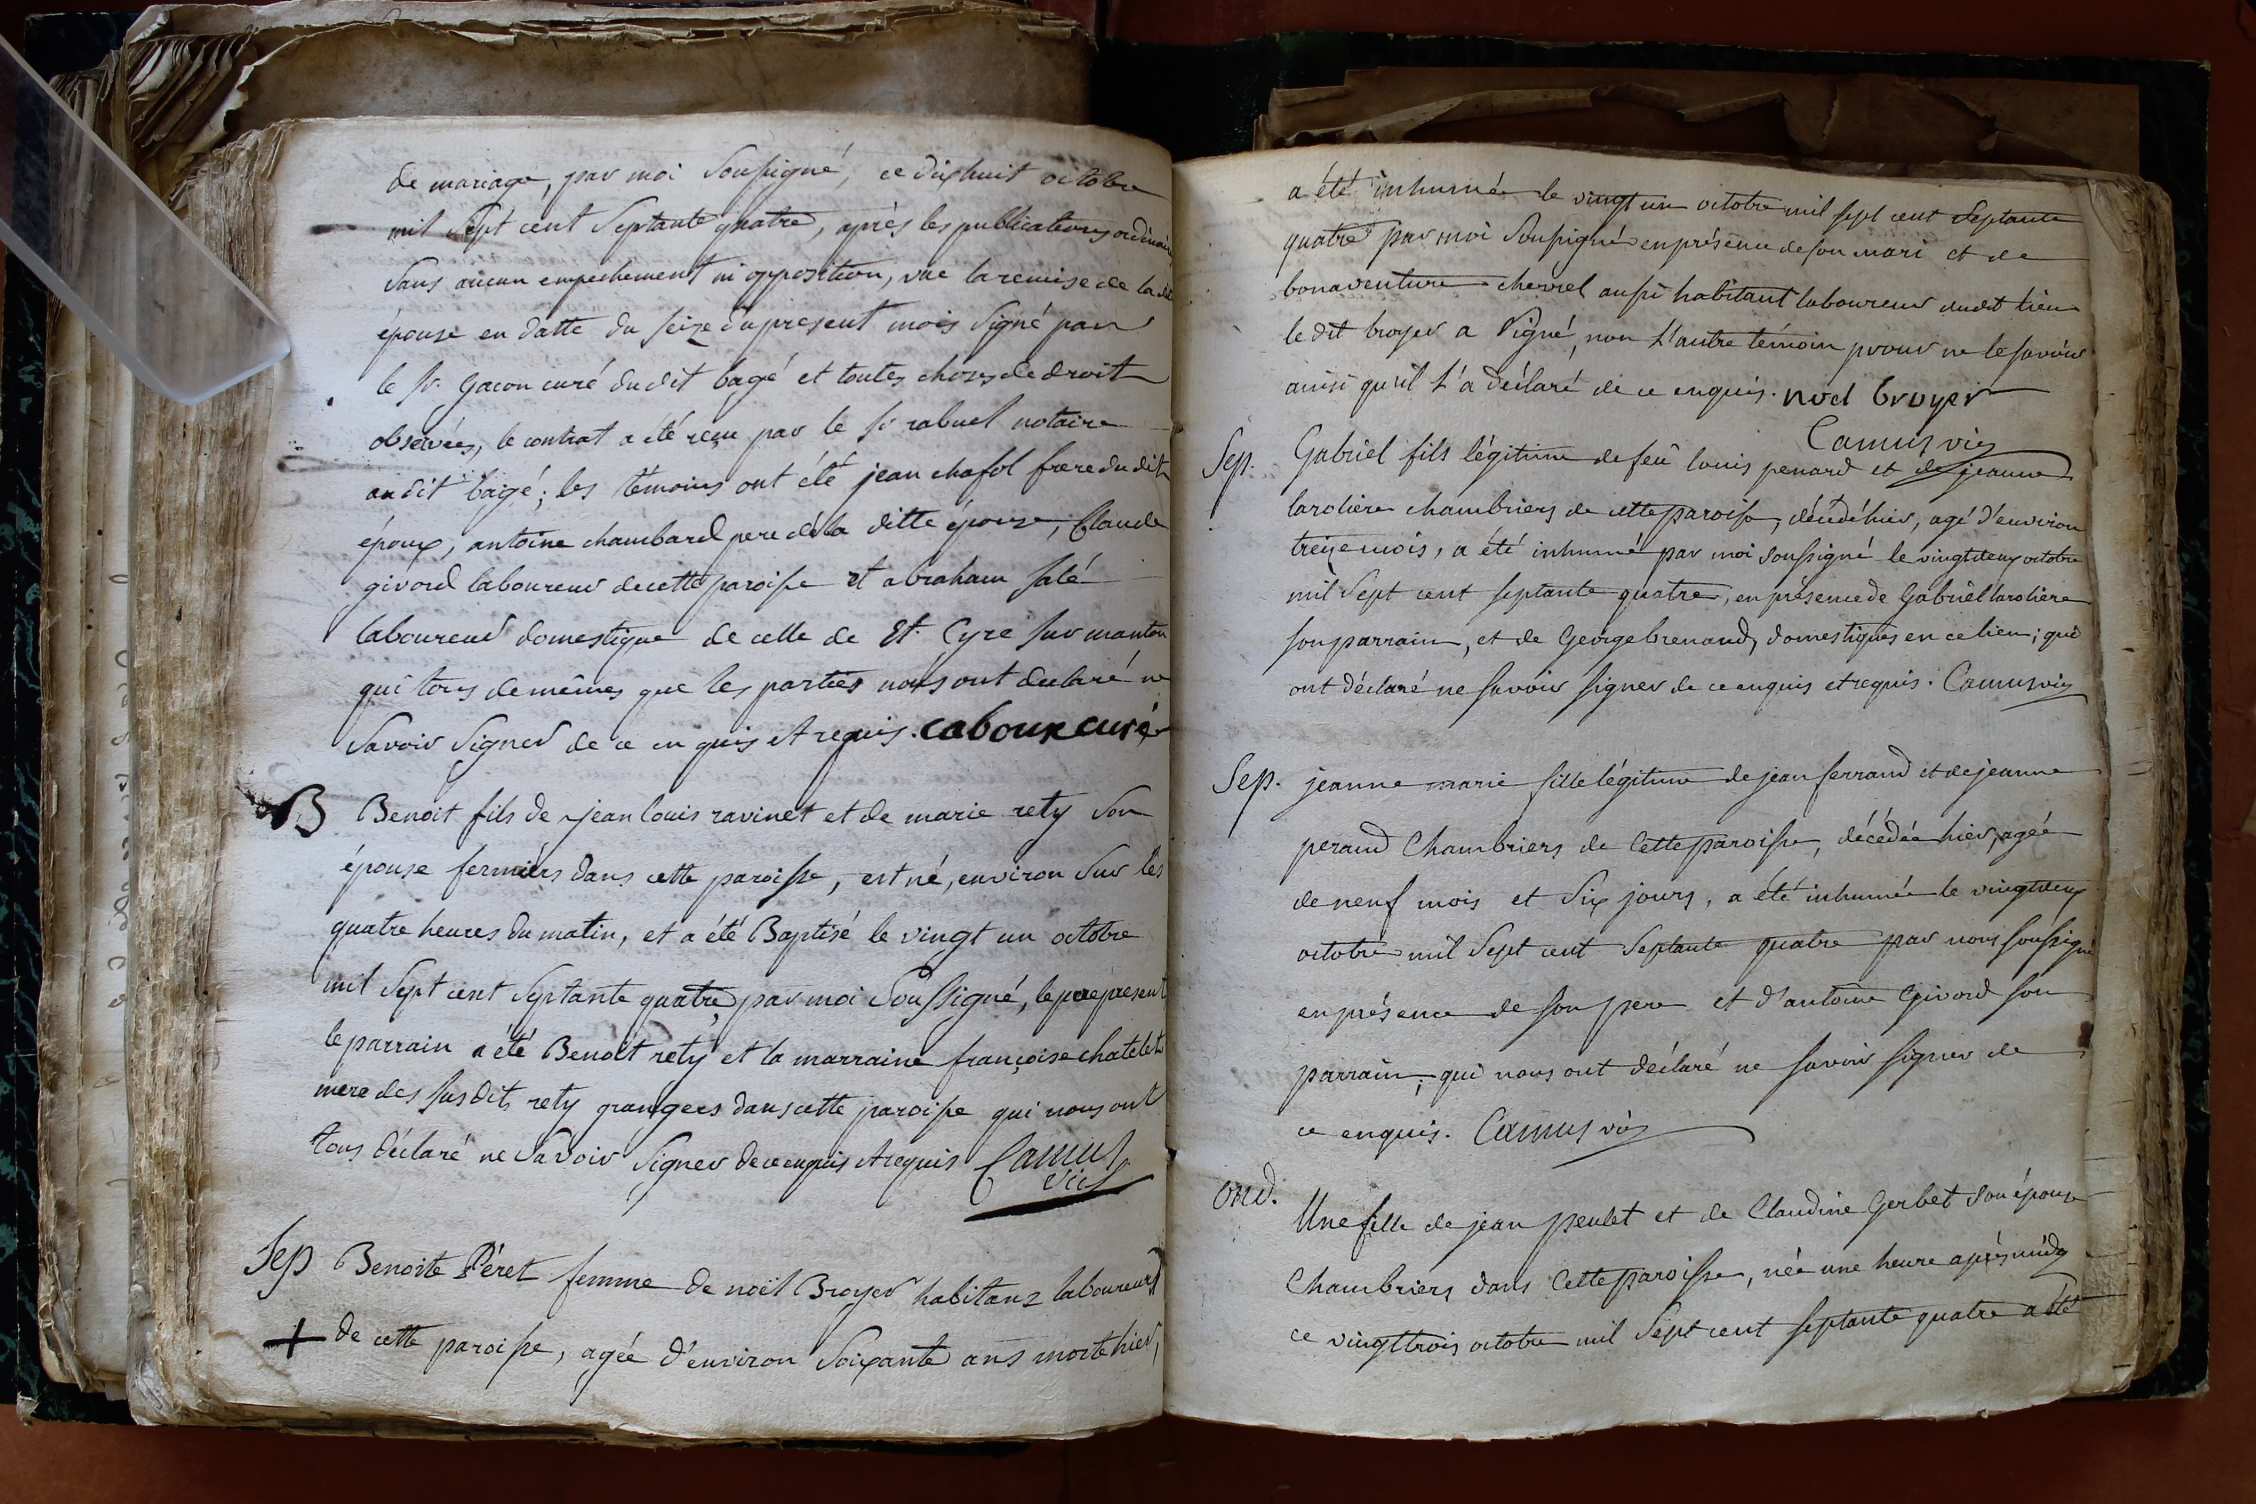 de mariage, par moi soussigné, ce dixhuit octobre
mil sept cent septante quatre, après les publications ordinaires
sans aucun empechement ni opposition, vue la remise de la dt
épouse en datte du seize du present mois signé par
le sr. gacon curé du dit bagé et toutes choses de droit
observées, le contrat a été reçu par le sr rabuel notaire
au dit bagé; les témoins ont été jean chafol frere du dit
époux, antoine chambard pere de la ditte épouse, Claude
givord laboureur de cette paroisse et abraham salé
laboureur domestique de celle de St. Cyre sur manton
qui tous de mêmes que les parties nous ont declaré ne
savoir signer de ce enquis et requis. caboux curé
B Benoit fils de jean louis ravinet et de marie rety son
épouse fermiers dans cette paroisse, est né, environ sur les
quatre heures du matin, et a été Baptisé le vingt un octobre
mil sept cent septante quatre, par moi soussigné, le pere present
le parrain a été Benoit rety et la marraine françoise chatelet
mere des susdits rety grangers dans cette paroisse qui nous ont
tous déclaré ne savoir signer de ce enquis et requis Camus
vic
Sep Benoite Péret femme de noël Broyer habitans laboureurs
+ de cette paroisse, agée d'environ soixante ans morte hier,
a été inhumée le vingt un octobre mil sept cent septante
quatre par moi soussigné en présence de son mari et de
bonaventure chevrel aussi habitant laboureur dudit lieu
le dit broyer a signé, non l'autre témoin pour ne le savoir
ainsi qu'il l'a déclaré de ce enquis. noel broyer
Camus vic
Sep. Gabriel fils légitime de feu louis penard et de jeanne
laroliere chambriers de cette paroisse, décédé hier, agé d'environ
treize mois, a été inhumé par moi soussigné le vingtdeux octobre
mil sept cent septante quatre, en présence de Gabriel laroliere
son parrain, et de George brenaud, domestiques en ce lieu; qui
ont déclaré ne savoir signer de ce enquis et requis. Camus vic
Sep. jeanne marie fille légitime de jean ferrand et de jeanne
peraud Chambriers de Cette paroisse, décédée hier, agée
de neuf mois et six jours, a été inhumée le vingtdeux
octobre mil sept cent septante quatre par nous soussigné
en présence de son pere et d'antoine Givord son
parrain; qui nous ont déclaré ne savoir signer de
ce enquis. Camus vic
ond. Une fille de jean peulet et de Claudine Gerbet son épouse
Chambriers dans Cette paroisse, née une heure après midy
ce vingttrois octobre mil sept cent septante quatre a été